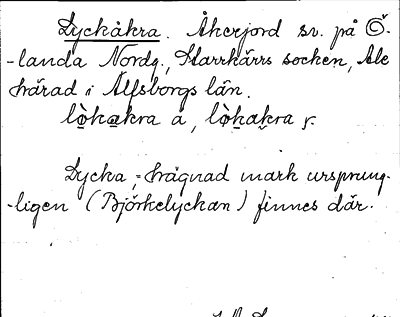 Lyckåkra. Åkerjord sv. på Ö-
-landa Nordg., Starrkärrs socken, Ale
härad i Älfsborgs län.
lò̱ẖa̱kra a, lò̱ẖakra
Lycka, = hägnad mark ursprung-
-ligen (Björkelyckan) finnes där.